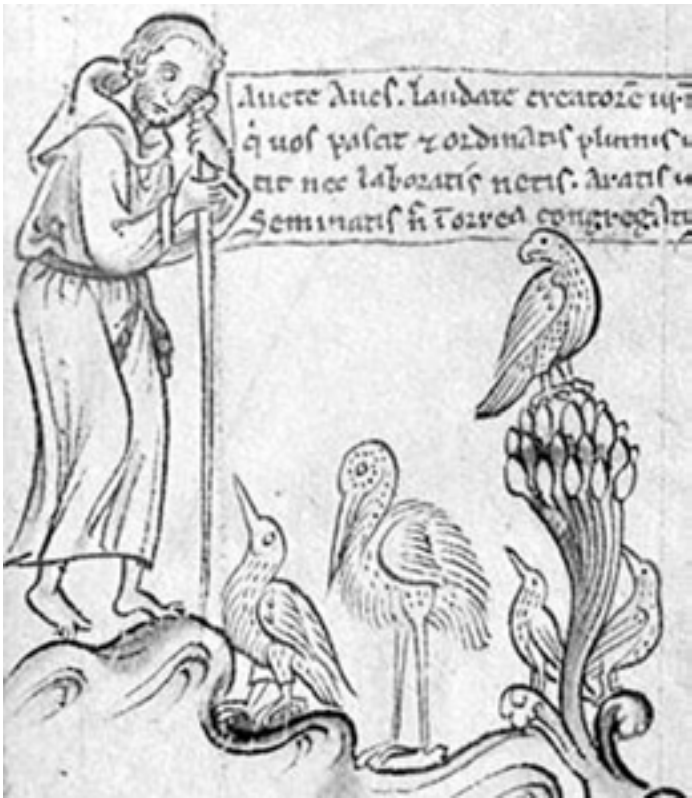 Auete Aues. laudate creatorē
q̇ uos pascit ⁊ ordinatis plumis
tit nec laboratis netis. Aratis
Seminatis n̄ ī orrea